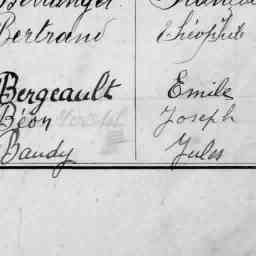 Bertrand Théophile
Bergeault Emile
Béon Joseph
Baudy Jules